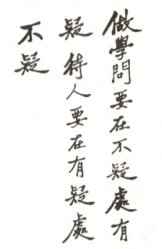 做學問要在不疑處有
疑待人要在有疑處
不疑